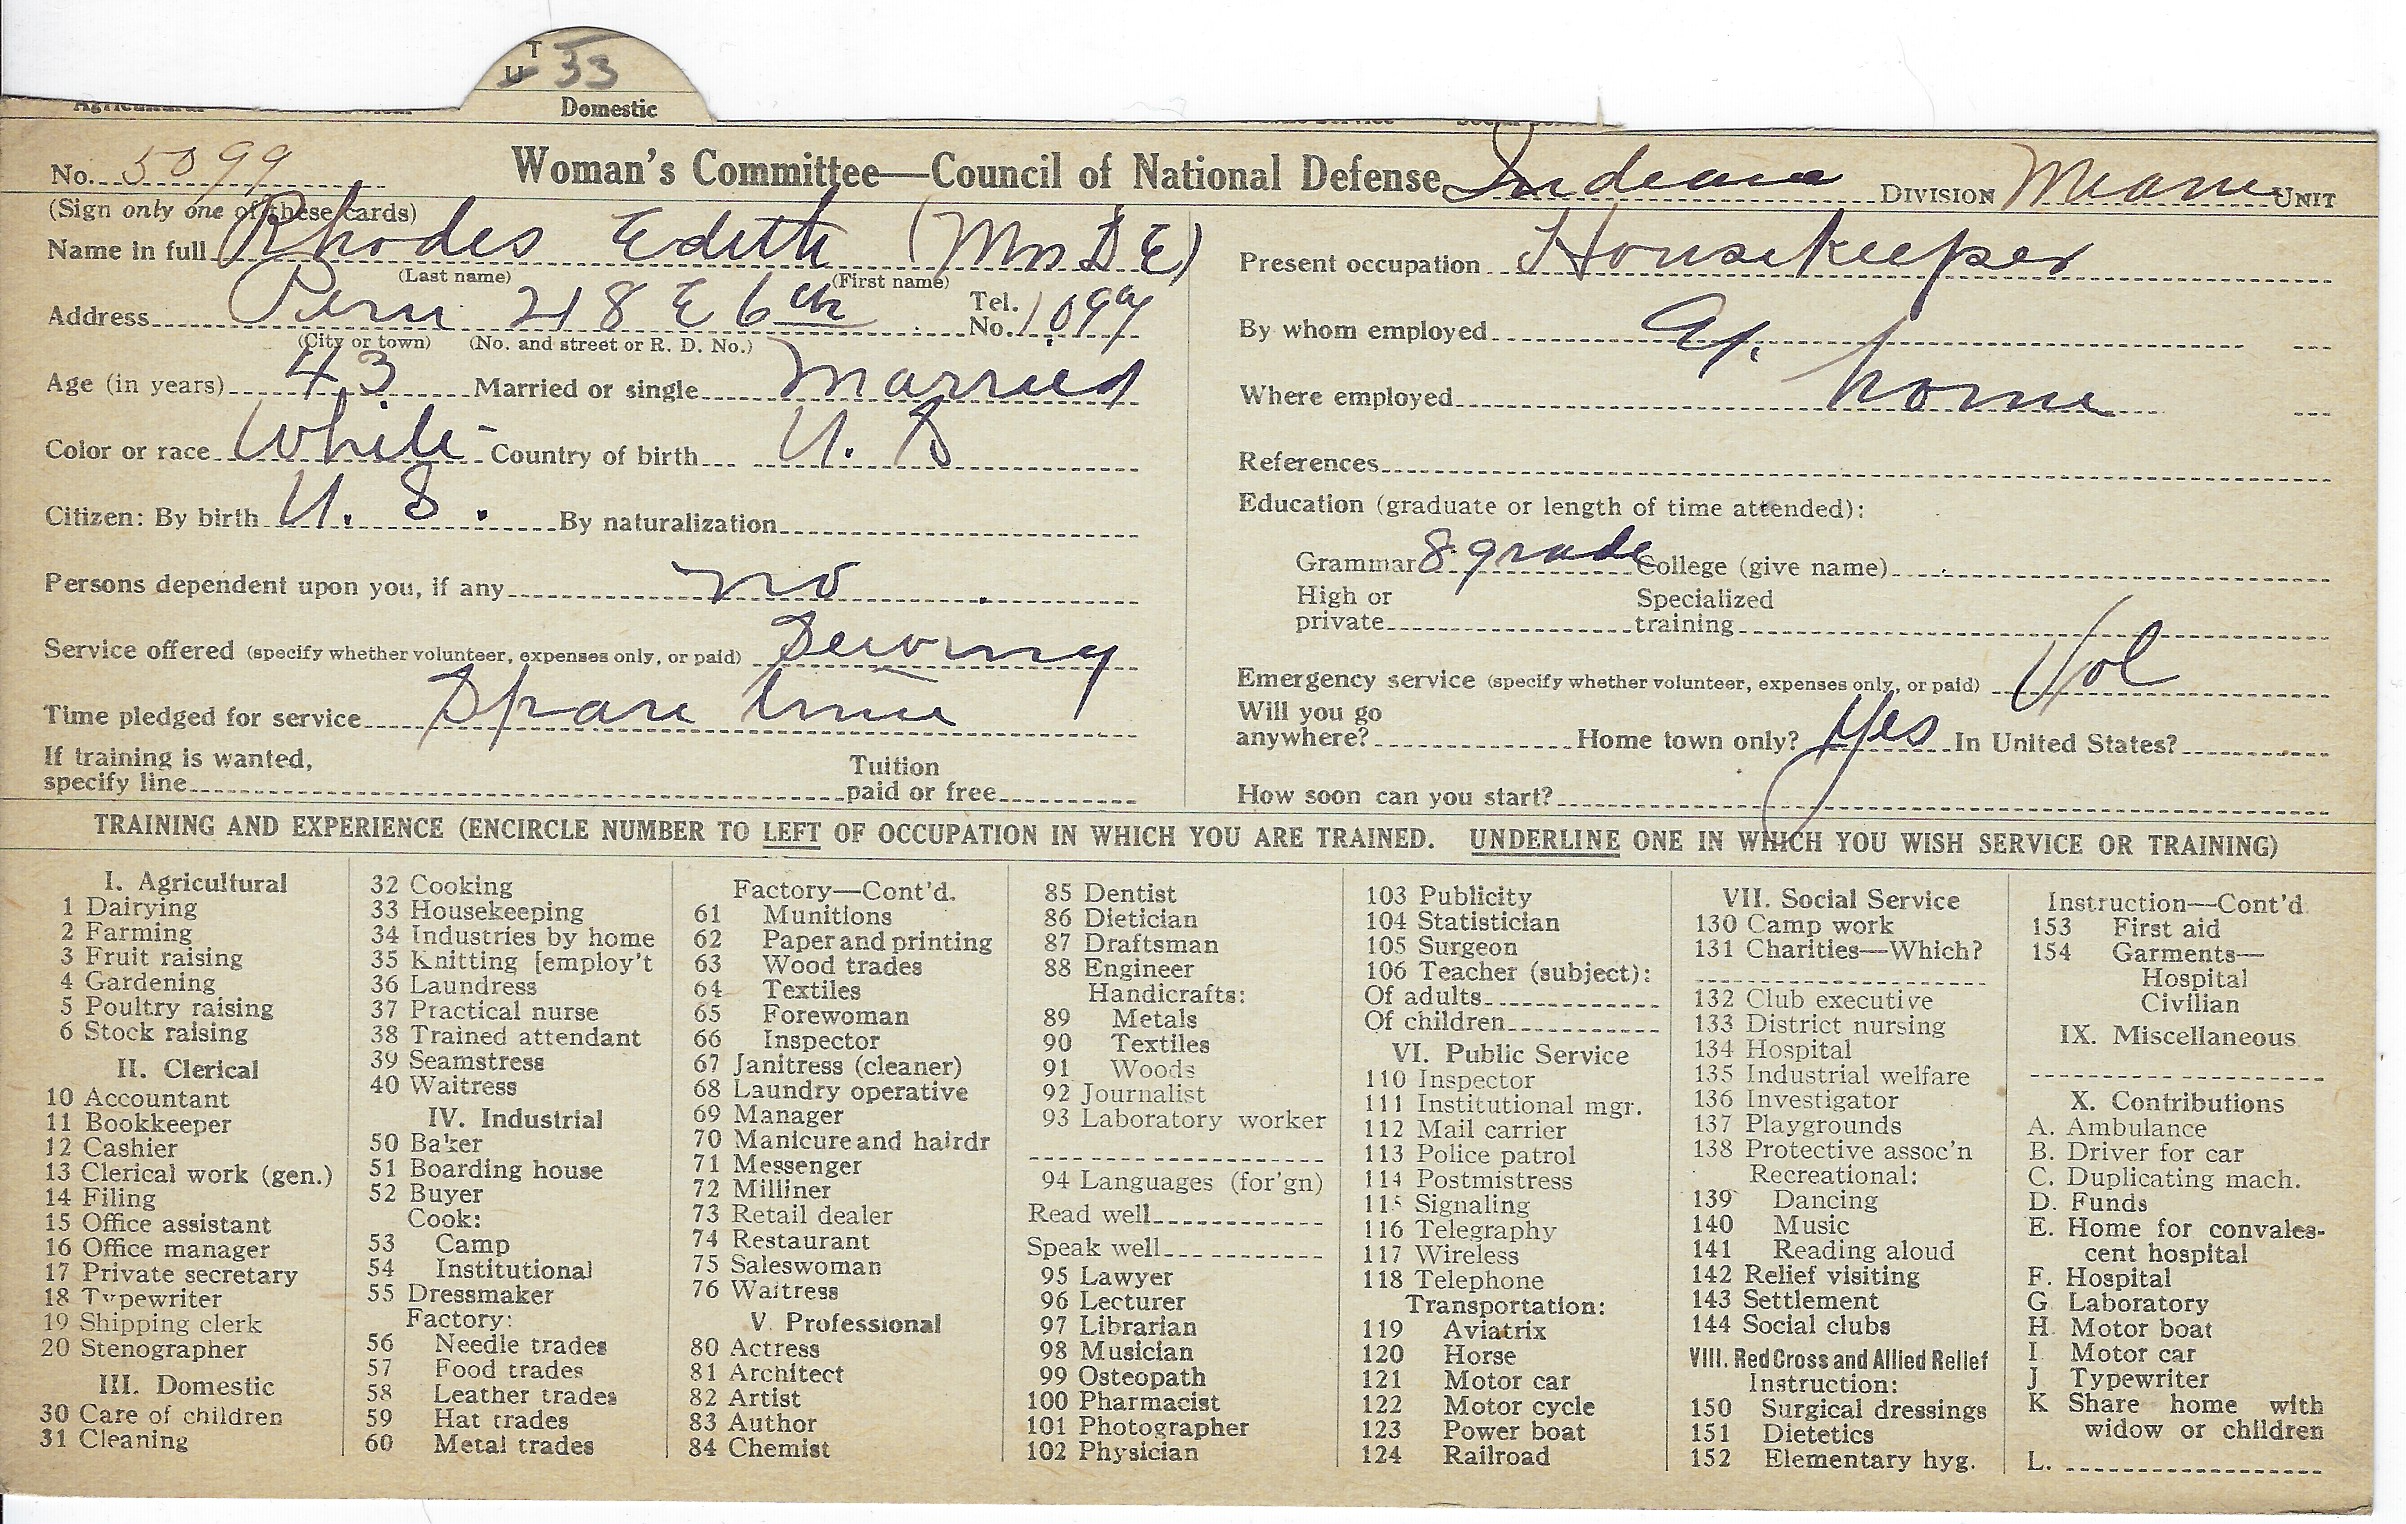 T
U 33
Domestic
No. 5099 Woman's Committee—Council of National Defense Indiana DIVISION Miami UNIT
(Sign only one of these cards)
Name in full Rhodes Edith (Mrs D E)
(Last name) (First name)
Address Peru 218 E 6th Tel. No. 1099
(City or town) (No. and street or R. D. No.)
Age (in years) 43 Married or single Married
Color or race White Country of birth U. S
Citizen: By birth U. S. By naturalization
Persons dependent upon you, if any no
Service offered (specify whether volunteer, expenses only, or paid) Sewing
Time pledged for service Spare time
If training is wanted,
specify line Tuition paid or free
Present occupation Housekeeper
By whom employed At
Where employed home
References
Education (graduate or length of time attended):
Grammar 8 grade College (give name)
High or private Specialized training
Emergency service (specify whether volunteer, expenses only, or paid) Vol
Will you go anywhere? Home town only? Yes In United States?
How soon can you start?
TRAINING AND EXPERIENCE (ENCIRCLE NUMBER TO LEFT OF OCCUPATION IN WHICH YOU ARE TRAINED. UNDERLINE ONE IN WHICH YOU WISH SERVICE OR TRAINING)
I. Agricultural
1 Dairying
2 Farming
3 Fruit raising
4 Gardening
5 Poultry raising
6 Stock raising
II. Clerical
10 Accountant
11 Bookkeeper
12 Cashier
13 Clerical work (gen.)
14 Filing
15 Office assistant
16 Office manager
17 Private secretary
18 Typewriter
19 Shipping clerk
20 Stenographer
III. Domestic
30 Care of children
31 Cleaning
32 Cooking
33 Housekeeping
34 Industries by home
35 Knitting [employ't
36 Laundress
37 Practical nurse
38 Trained attendant
39 Seamstress
40 Waitress
IV. Industrial
50 Baker
51 Boarding house
52 Buyer
Cook:
53 Camp
54 Institutional
55 Dressmaker
Factory:
56 Needle trades
57 Food trades
58 Leather trades
59 Hat trades
60 Metal trades
Factory—Cont'd.
61 Munitions
62 Paper and printing
63 Wood trades
64 Textiles
65 Forewoman
66 Inspector
67 Janitress (cleaner)
68 Laundry operative
69 Manager
70 Manicure and hairdr
71 Messenger
72 Milliner
73 Retail dealer
74 Restaurant
75 Saleswoman
76 Waitress
V. Professional
80 Actress
81 Architect
82 Artist
83 Author
84 Chemist
85 Dentist
86 Dietician
87 Draftsman
88 Engineer
Handicrafts:
89 Metals
90 Textiles
91 Woods
92 Journalist
93 Laboratory worker
94 Languages (for'gn)
Read well
Speak well
95 Lawyer
96 Lecturer
97 Librarian
98 Musician
99 Osteopath
100 Pharmacist
101 Photographer
102 Physician
103 Publicity
104 Statistician
105 Surgeon
106 Teacher (subject):
Of adults
Of children
VI. Public Service
110 Inspector
111 Institutional mgr.
112 Mail carrier
113 Police patrol
114 Postmistress
115 Signaling
116 Telegraphy
117 Wireless
118 Telephone
Transportation:
119 Aviatrix
120 Horse
121 Motor car
122 Motor cycle
123 Power boat
124 Railroad
VII. Social Service
130 Camp work
131 Charities—Which?
132 Club executive
133 District nursing
134 Hospital
135 Industrial welfare
136 Investigator
137 Playgrounds
138 Protective assoc'n
Recreational:
139 Dancing
140 Music
141 Reading aloud
142 Relief visiting
143 Settlement
144 Social clubs
VIII. Red Cross and Allied Relief
Instruction:
150 Surgical dressings
151 Dietetics
152 Elementary hyg.
Instruction—Cont'd
153 First aid
154 Garments—
Hospital
Civilian
IX. Miscellaneous
X. Contributions
A. Ambulance
B. Driver for car
C. Duplicating mach.
D. Funds
E. Home for convales-
cent hospital
F. Hospital
G Laboratory
H. Motor boat
I Motor car
J Typewriter
K Share home with
widow or children
L.